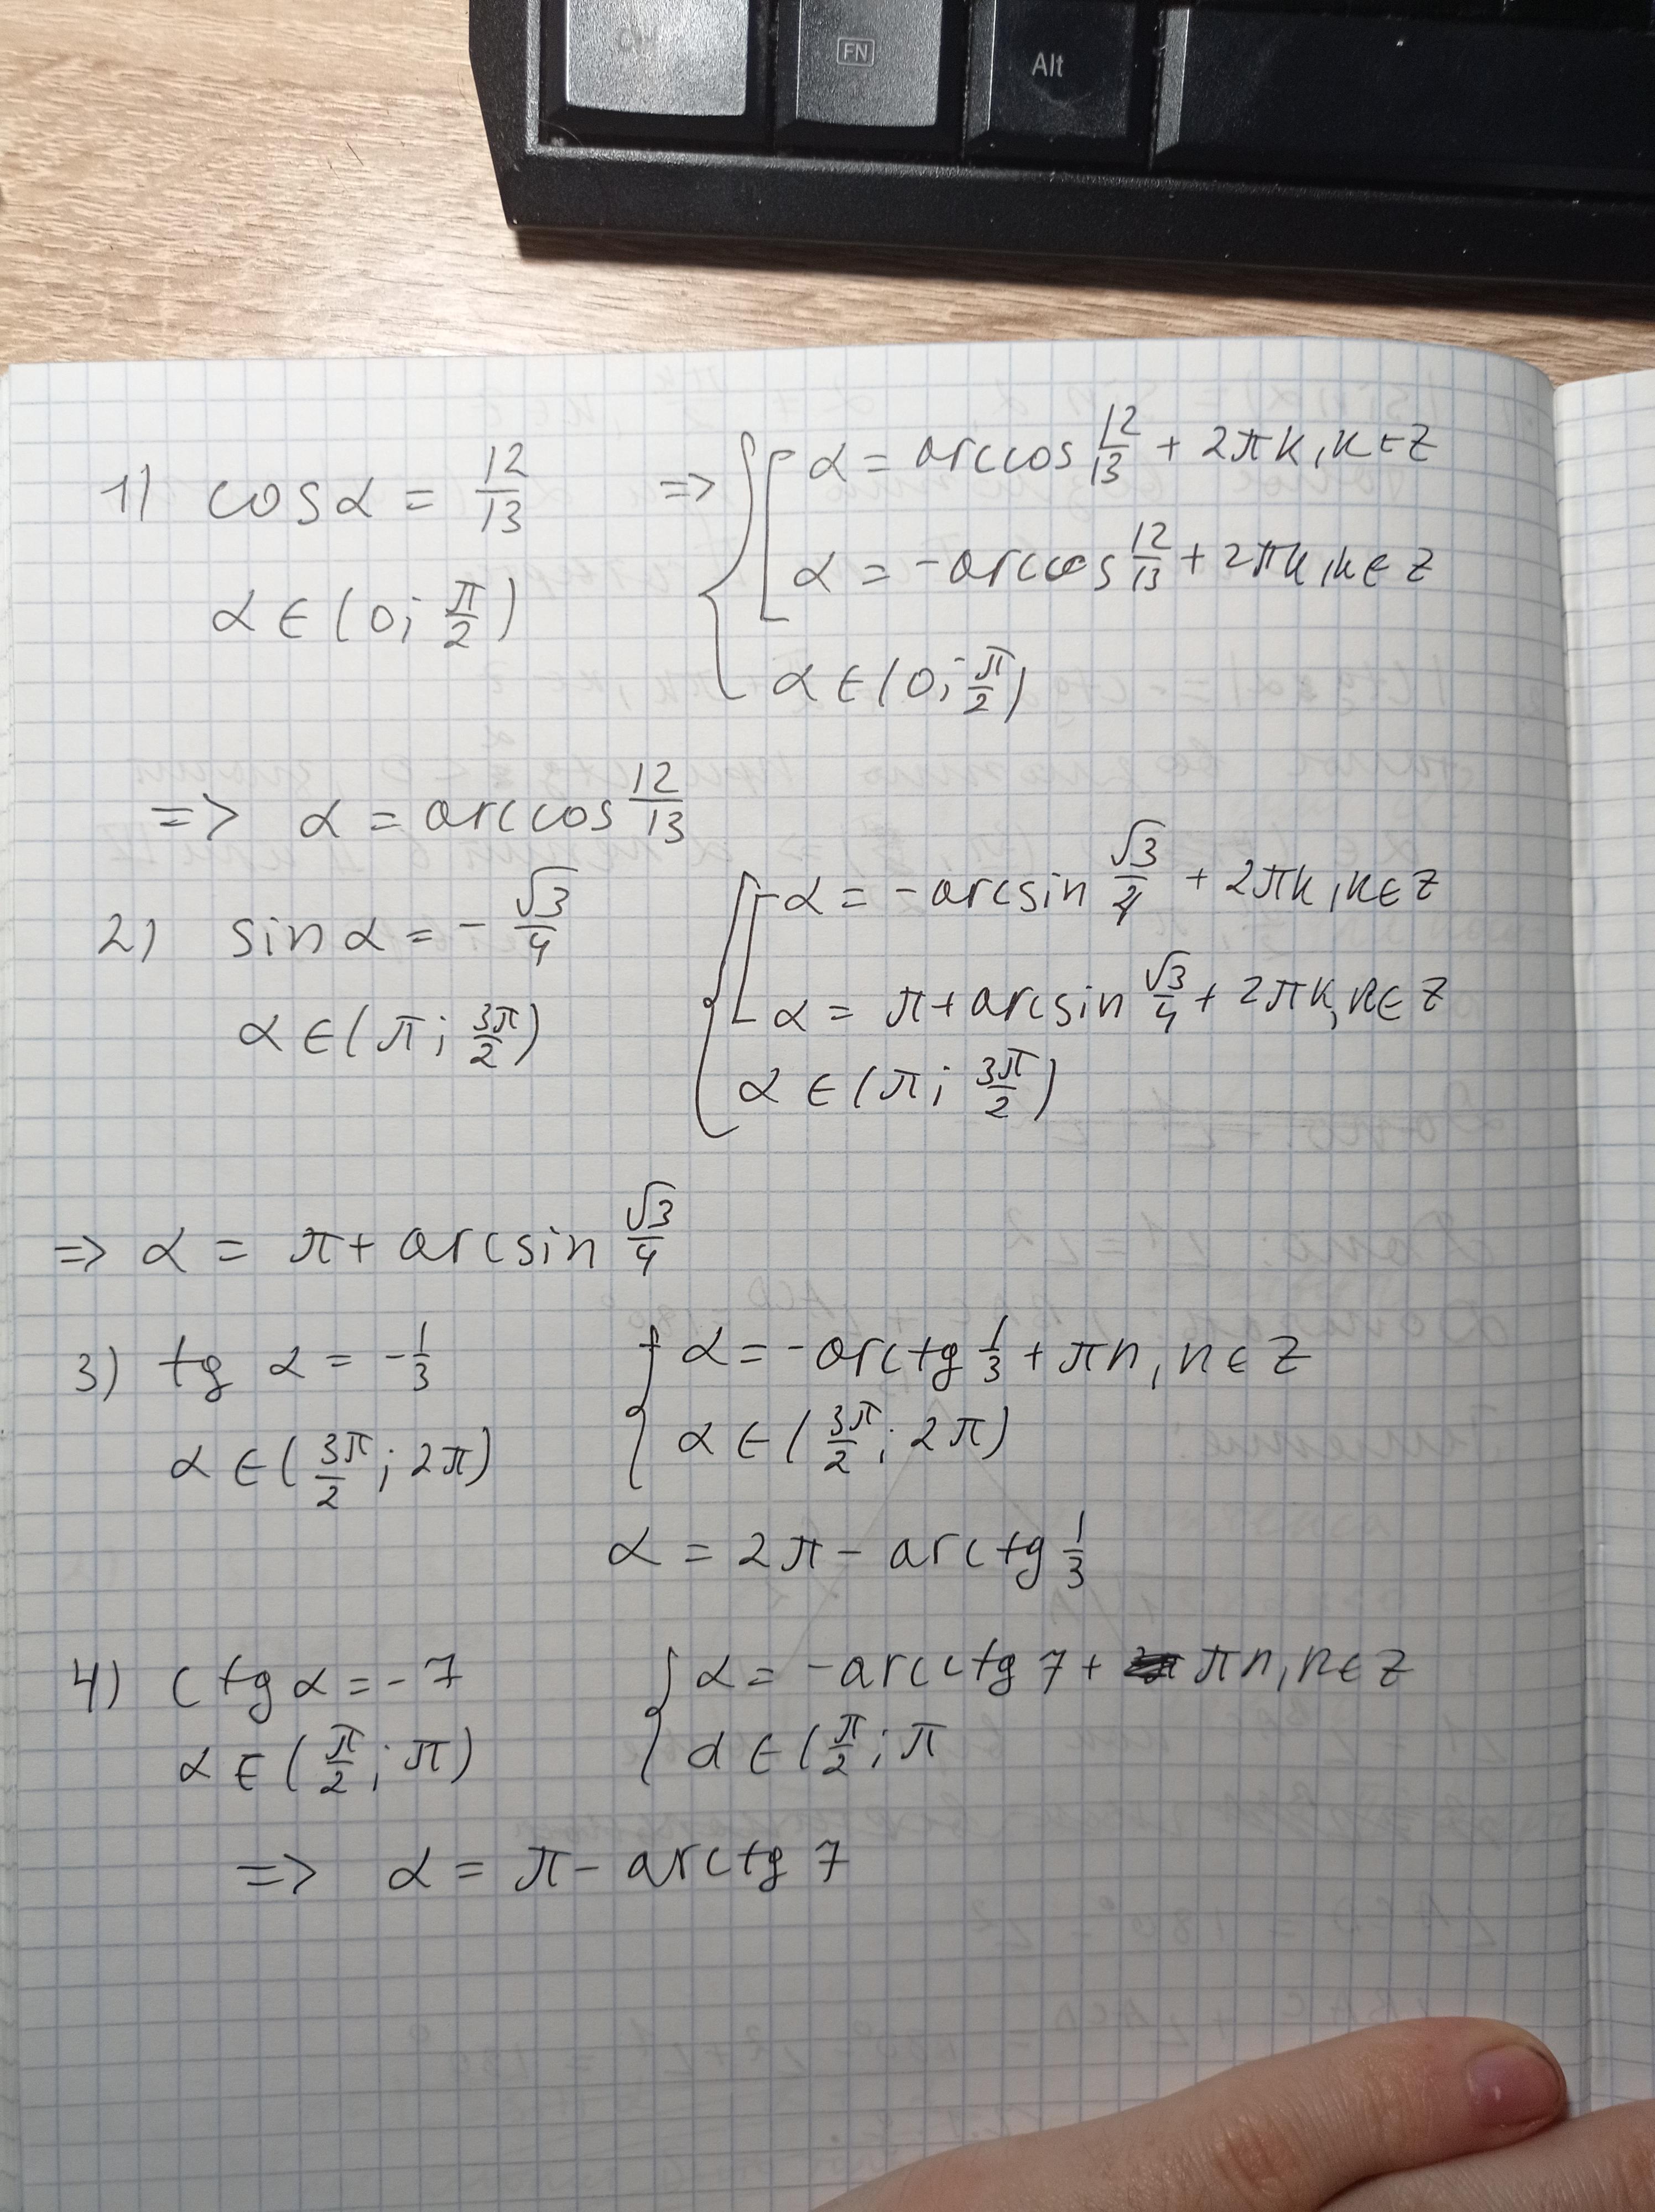 FN
Alt
1) cos α = 12/13 => { [ α = arccos 12/13 + 2πk, k ∈ Z
α = -arccos 12/13 + 2πk, k ∈ Z
α ∈ (0; π/2)
α ∈ (0; π/2)
=> α = arccos 12/13
2) sin α = - √3/4 { [ α = -arcsin √3/4 + 2πk, k ∈ Z
α = π + arcsin √3/4 + 2πk, k ∈ Z
α ∈ (π; 3π/2)
α ∈ (π; 3π/2)
=> α = π + arcsin √3/4
3) tg α = - 1/3 { α = -arctg 1/3 + πn, n ∈ Z
α ∈ (3π/2; 2π) α ∈ (3π/2; 2π)
α = 2π - arctg 1/3
4) ctg α = -7 { α = -arcctg 7 + πn, n ∈ Z
α ∈ (π/2; π) α ∈ (π/2; π
=> α = π - arctg 7